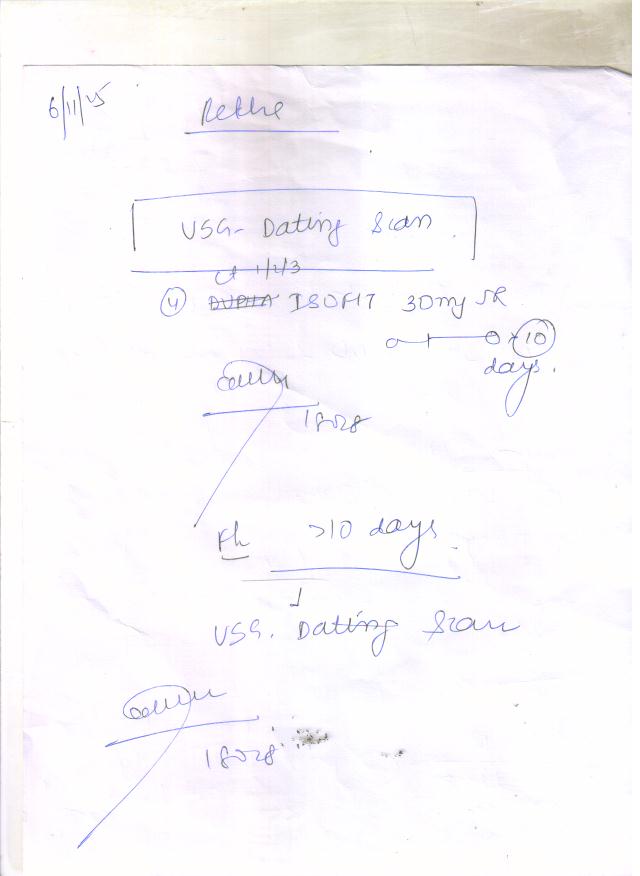 6/11/25
Rekha
USG- Dating Scan.
ct 1/2/3
④ ISOFIT 30mg SR
× 10
days.
18028
>10 days.
USG. Dating Scan
18028